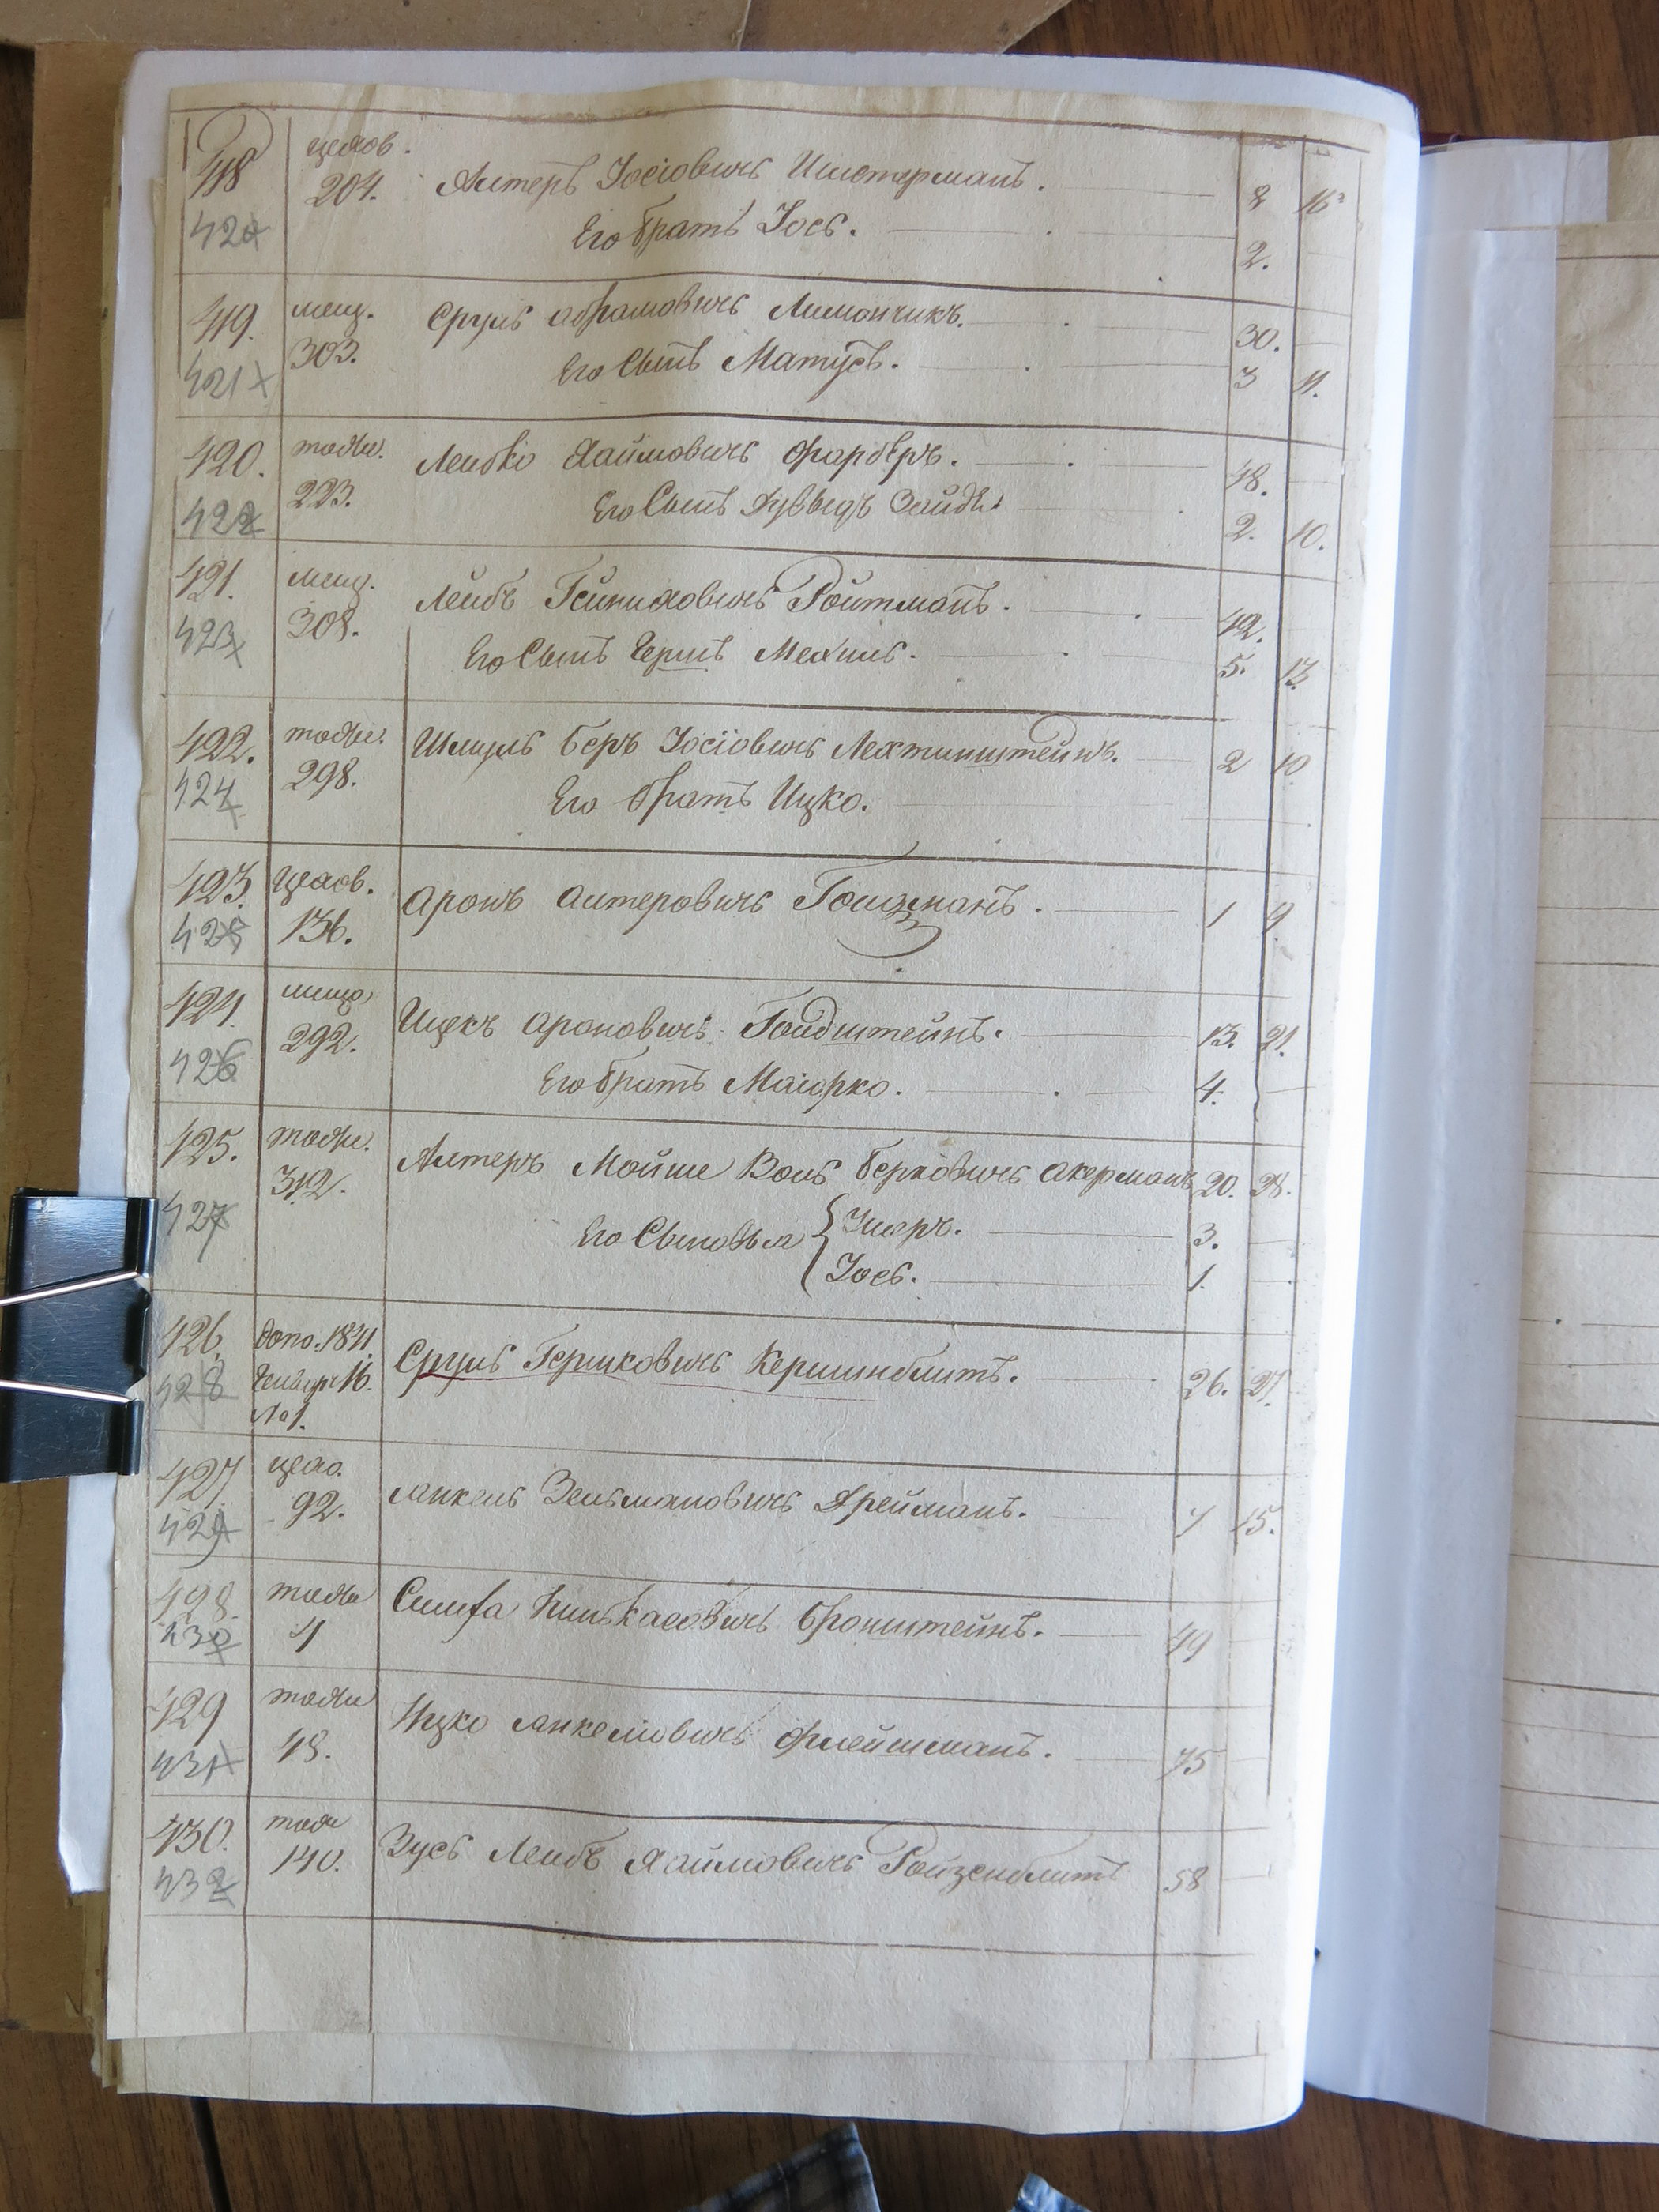 418 цехов. Алтеръ Іосіовичъ Шистерманъ. 8 16
420 204. Его братъ Іось. 2.
419. мещ. Сруль Абрамовичъ Лимончикъ. 30.
421 303. Его Сынъ Матусъ. 3 11.
420. тоже. Лейбко Хаимовичъ Фарберъ. 48.
422 223. Его Сынъ Дувыдъ Зайде. 2. 10.
421. мещ. Лейбъ Гейниховичъ Ройтманъ. 42.
423 308. Его Сынъ Герщъ Мехиль. 5. 13
422. тоже. Шмуль Беръ Іосіовичъ Лехтинштейнъ. 2 10
424 298. Его братъ Ицко.
423. Цехов. Аронъ Алтеровичъ Гольдманъ. 1 9.
425 136.
424. мещ. Ицекъ Ароновичъ Гольдштейнъ. 13. 21.
426 292. Его братъ Маіорко. 4.
425. тоже. Алтеръ Мойше Воль Берковичъ Акерманъ 20. 28.
427 312. Его Сыновья Ушеръ. 3.
Іось. 1.
426. допо. 1841. Сруль Гершковичъ Кершинблитъ. 26. 27.
428 Генваря 16.
№ 1.
427 цехо. Янкель Зельмановичъ Дрейманъ. 7 15.
429 92.
428. тоже Симха Пинькасовичъ Бронштейнъ. 49
430 4
429 тоже Ицко Янкеліовичъ Флейшманъ. 45
431 48.
430. тоже Зусь Лейбъ Хаимовичъ Ройзенблитъ 58
432 140.